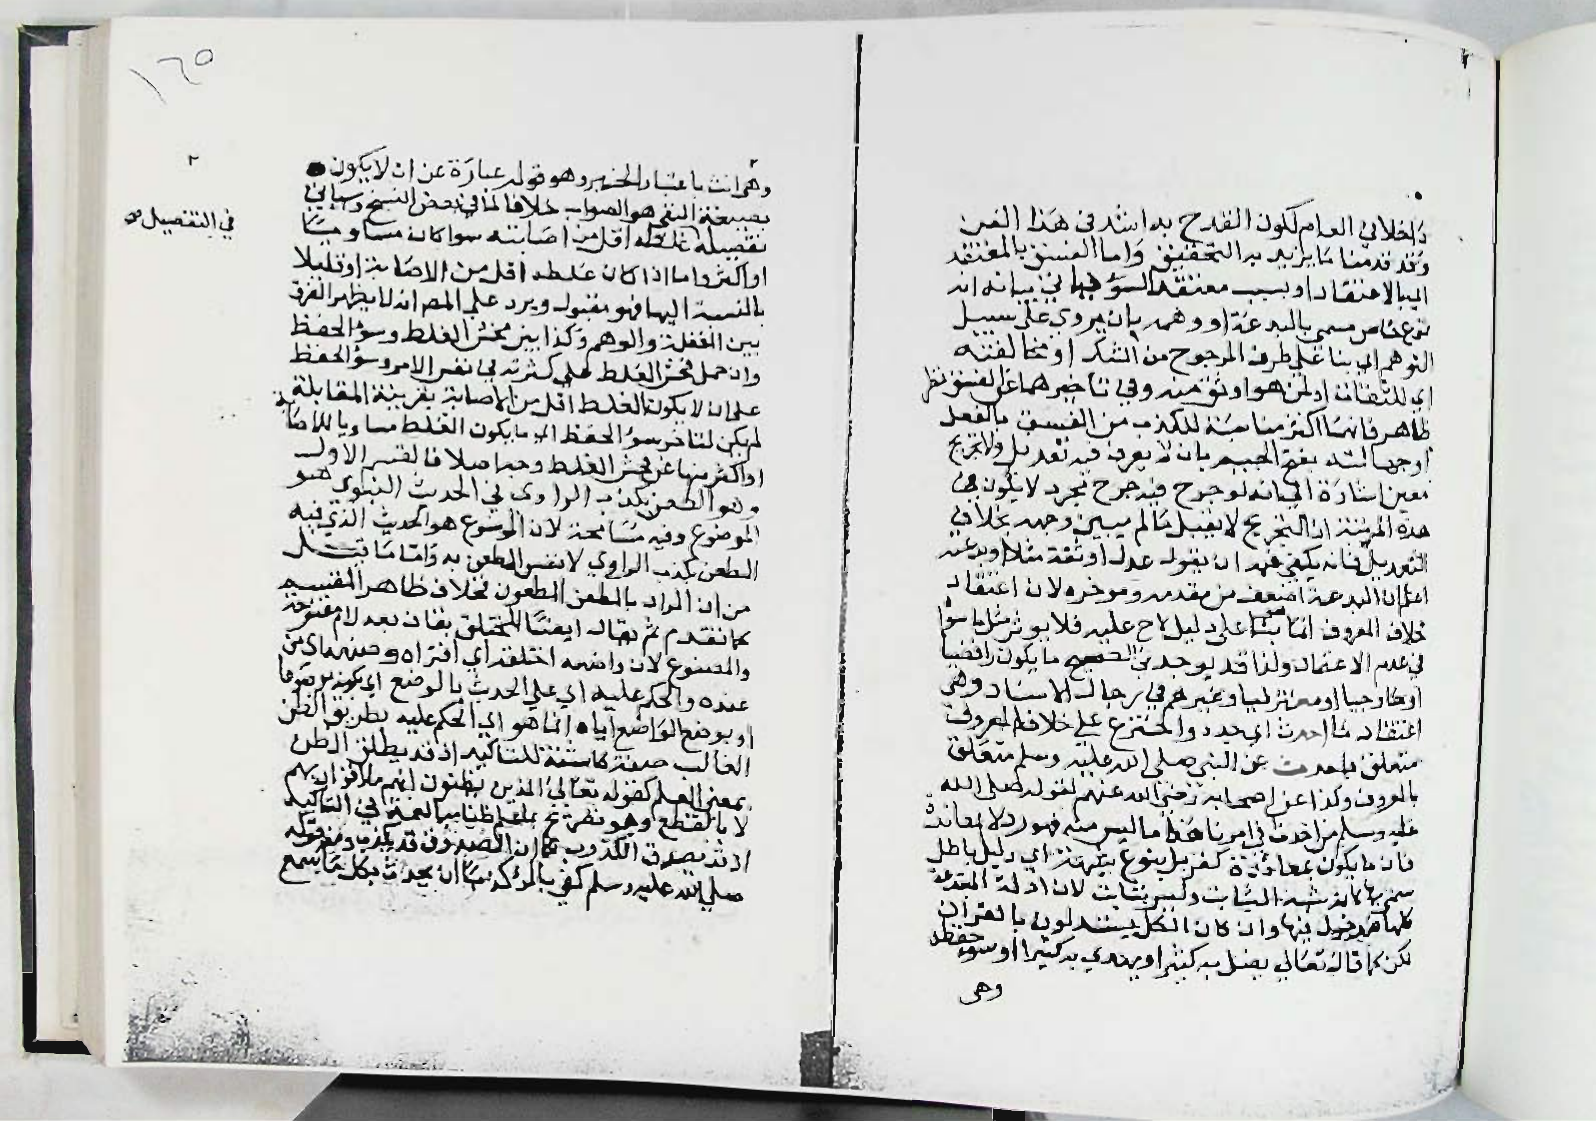 داخلا في العام لكون القدح به اشد في هذا الفن
وقد قدمنا ما يزيد به التحقيق واما الفسق بالمعتقد
اي بالاعتقاد او بسبب معتقد السوء فياتي بيانه انه
نوع خاص مسمى بالبدعة او وهمه بان يروي على سبيل
التوهم اي بنا على طرف المرجوح من الشك او مخالفته
اي للثقات او لمن هو اوثق منه وفي تاخيرهما عن الفسق نظر
ظاهر فانهما اكثر مناسبة للكذب من الفسق بالفعل
او جهالته بفتح الجيم بان لا يعرف فيه تعديل ولا تجريح
معين اشارة الى انه لو جرح فيه جرح مجرد لا يكون في
هذه المرتبة لان التجريح لا يقبل ما لم يبين وجهه بخلاف
التعديل فانه يكفي فيه ان يقول عدل او ثقة مثلا او بدعته
اعلم ان البدعة اضعف من مقدمه وموخره لان اعتقاد
خلاف المعروف انما بنا على دليل لاح عليه فلا يوثر مثل ما سوا
في عدم الاعتماد ولذا قد يوجد في الصحيح ما يكون رافضيا
او خارجيا او معتزليا وغيرهم في رجال الاسناد وهي
اعتقاد ما احدث اي جدد واخترع على خلاف المعروف
متعلق باحدث عن النبي صلى الله عليه وسلم متعلق
بالمعروف وكذا عن اصحابه رضي الله عنهم لقوله صلى الله
عليه وسلم من احدث في امرنا هذا ما ليس منه فهو رد لا بمعاندة
فان ما يكون بمعاندة كفر بل بنوع شبهة اي دليل باطل
سمي بها لانه شبه الثابت وليس بثابت لان ادلة المبتدعة
كلها مدخول فيها وان كان الكل يستدلون بالقران
لكن كما قال تعالى يضل به كثيرا ويهدي به كثيرا او سوء حفظه
وهي
١٦٥
وهي انث باعتبار الخبر وهو قوله عبارة عن ان لا يكون
بصيغة النفي هو الصواب خلافا لما في بعض النسخ وسياتي
تفصيله غلطه اقل من اصابته سوا كان مساويا
او اكثر واما اذا كان غلطه اقل من الاصابة او قليلا
بالنسبة اليها فهو مقبول ويرد على المص انه لا يظهر الفرق
بين الغفلة والوهم وكذا بين فحش الغلط وسوء الحفظ
وان حمل فحش الغلط على كثرته في نفس الامر وسوء الحفظ
على ان لا يكون الغلط اقل من الاصابة بقرينة المقابلة
لم يكن لتاخر سوء الحفظ اي ما يكون الغلط مساويا للاصابة
او اكثر منها عن فحش الغلط وجه اصلا فالقسم الاول
وهو الطعن بكذب الراوي في الحديث النبوي هو
الموضوع وفيه مسامحة لان الموضوع هو الحديث الذي فيه
الطعن بكذب الراوي لا نفس الطعن به واما ما قيل
من ان المراد بالطعن المطعون فخلاف ظاهر المقسم
كما تقدم ثم يقال ايضا المختلق بقاف بعد لام مفتوحة
والمصنوع لان واضعه اختلقه اي افتراه وصنعه من
عنده والحكم عليه اي على الحديث بالوضع اي بكونه موضوعا
او بوضع الواضع اياه انما هو اي الحكم عليه بطريق الظن
الغالب صفة كاشفة للتاكيد اذ قد يطلق الظن
بمعنى العلم كقوله تعالى الذين يظنون انهم ملاقوا ربهم
لا بالقطع
اذ قد يصدق الكذوب كما ان الصدوق قد يكذب ومنه قوله
صلى الله عليه وسلم كفى بالمرء كذبا ان يحدث بكل ما يسمع
٢
في التفصيل صح